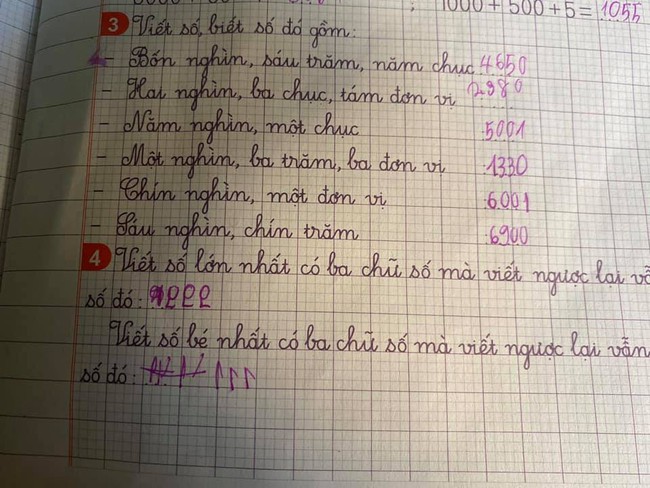 ; 1000 + 500 + 5 = 1055
3 Viết số, biết số đó gồm:
- Bốn nghìn, sáu trăm, năm chục 4650
- Hai nghìn, ba chục, tám đơn vị 2980
- Năm nghìn, một chục 5001
- Một nghìn, ba trăm, ba đơn vị 1330
- Chín nghìn, một đơn vị 6001
- Sáu nghìn, chín trăm 6900
4 Viết số lớn nhất có ba chữ số mà viết ngược lại
số đó:
Viết số bé nhất có ba chữ số mà viết ngược lại vẫn
số đó: 111